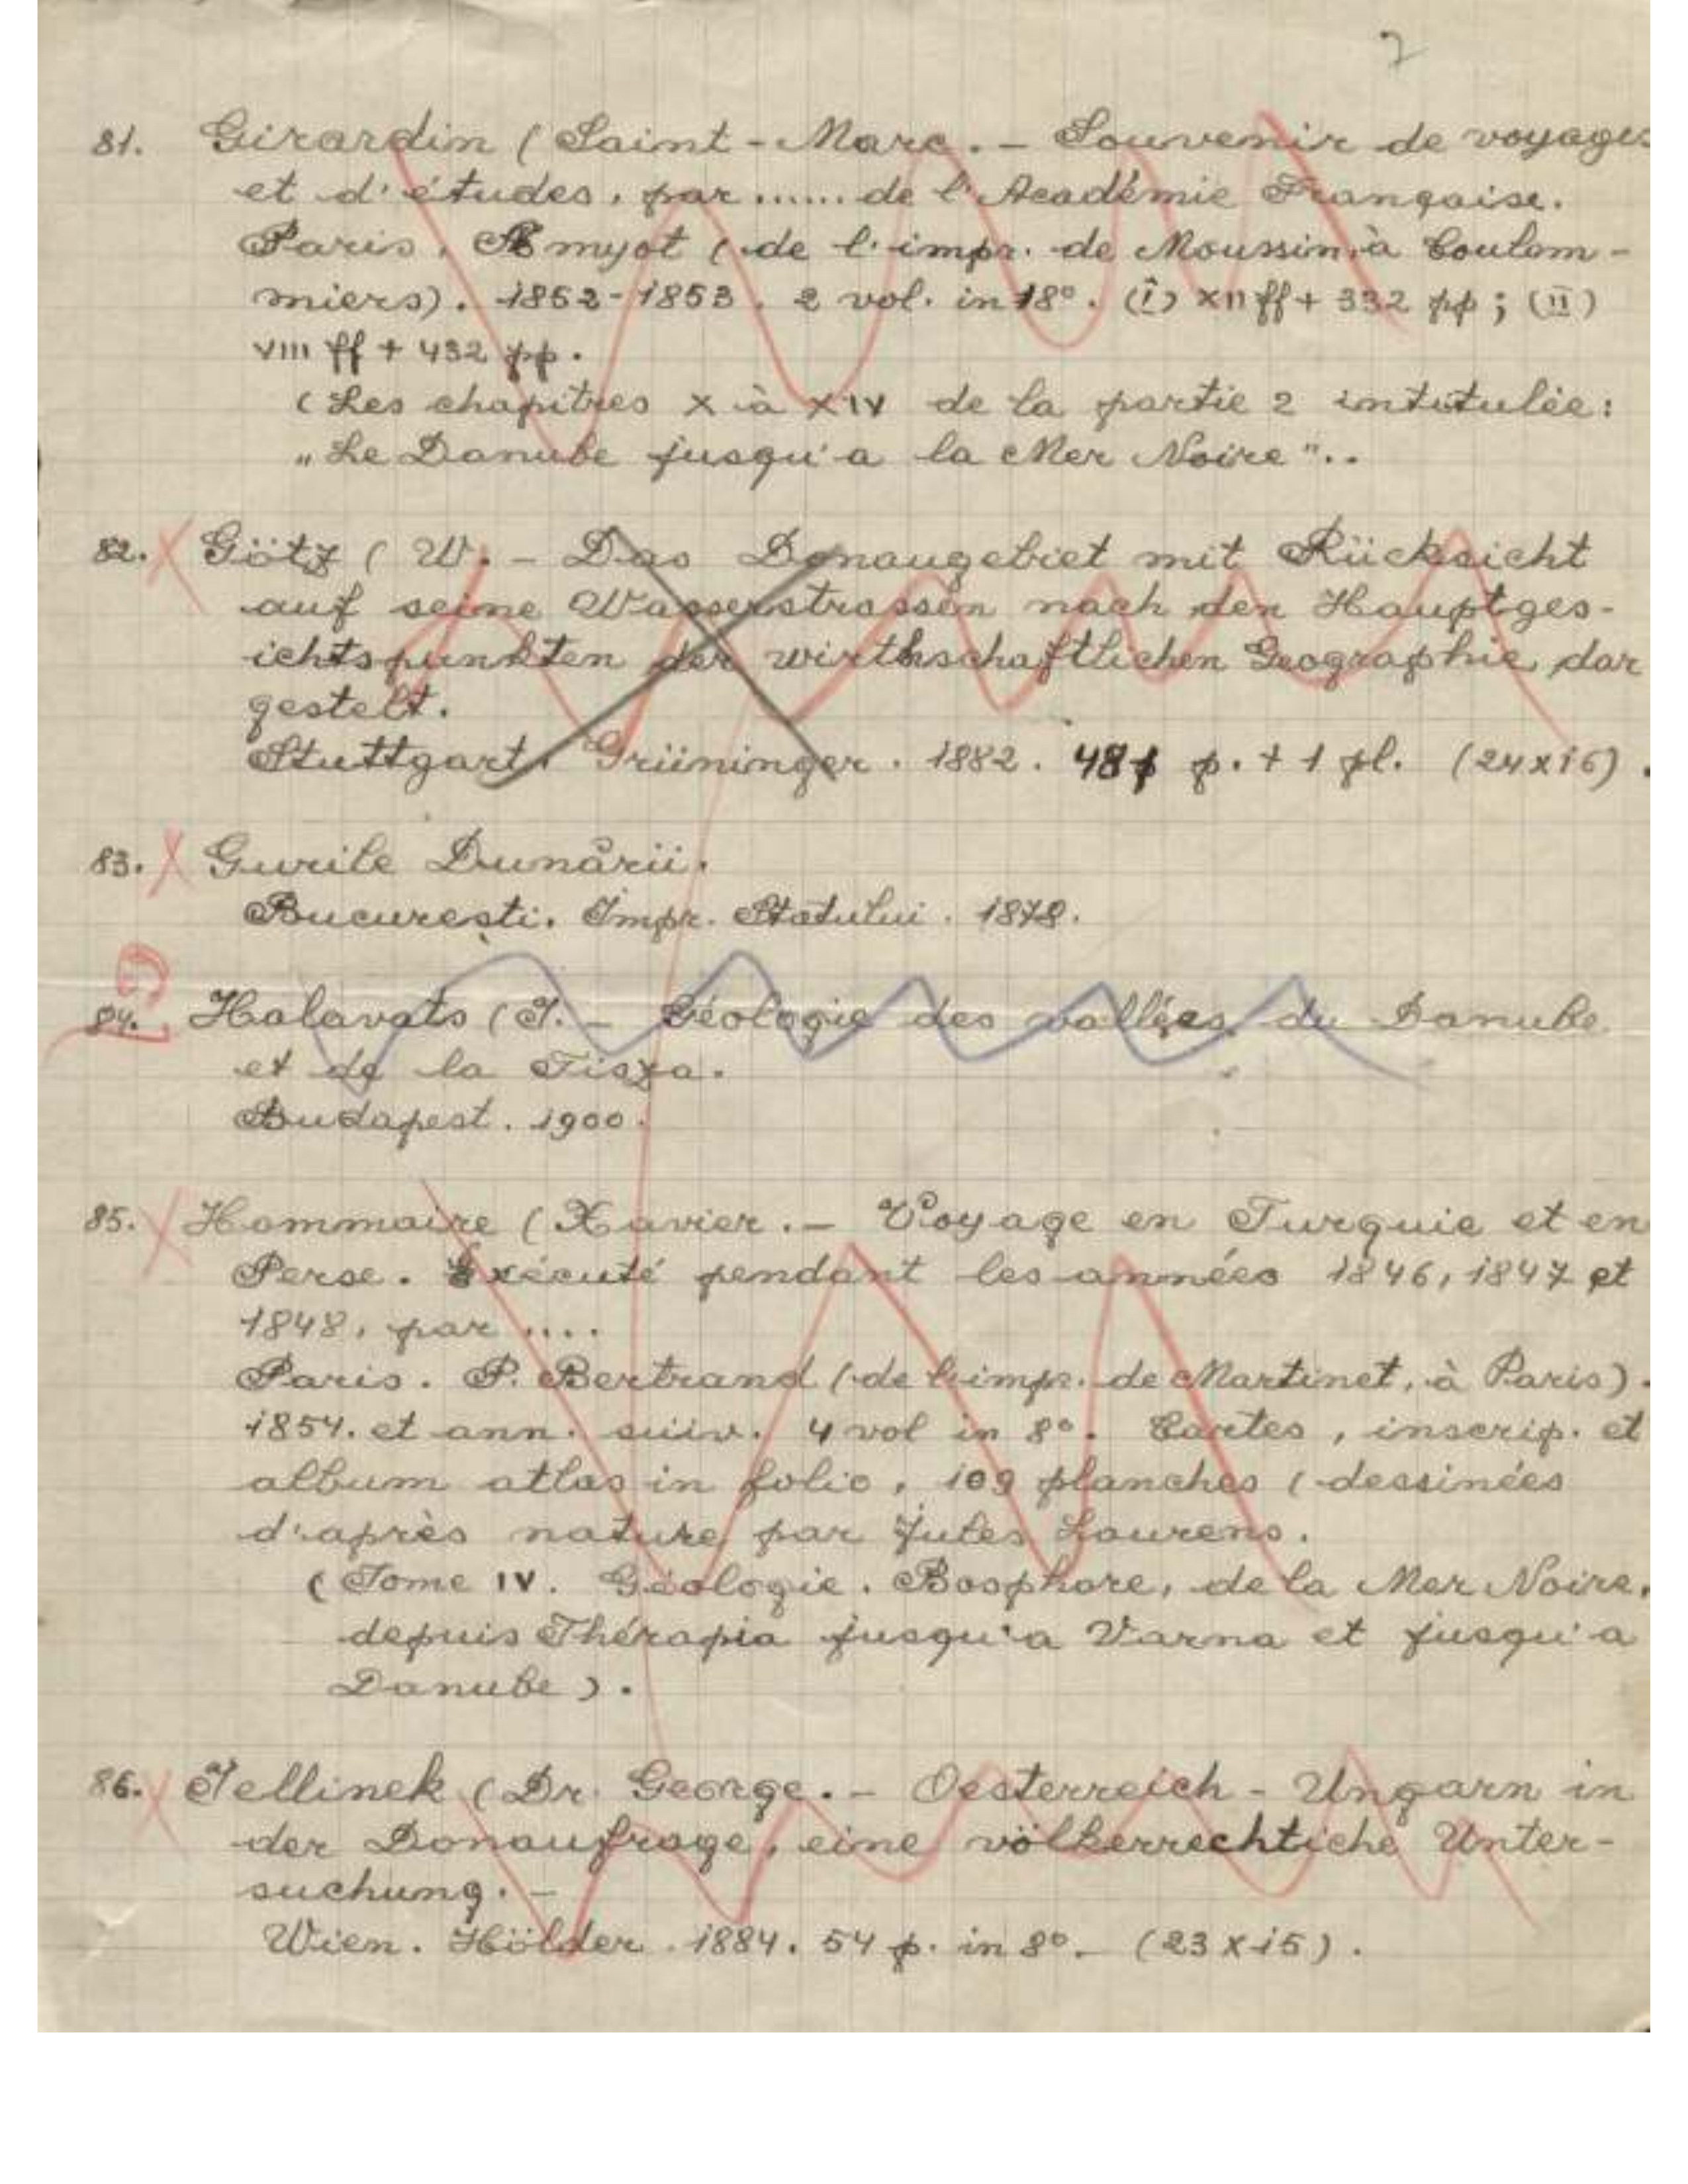 7
81. Girardin (Saint-Marc. - Souvenir de voyages
et d'études, par ...... de l'Académie Française.
Paris, Amyot (de l'impr. de Moussin, à Coulom-
miers). 1852-1853. 2 vol. in 18°. (I) XII ff + 332 pp ; (II)
VIII ff + 432 pp.
(Les chapitres X à XIV de la partie 2 intutulée:
„Le Danube jusqu'a la Mer Noire"..
82. X Götz (W. - Das Donaugebiet mit Rücksicht
auf seine Wasserstrassen nach den Hauptges-
ichtspunkten der wirthschaftlichen Geographie dar
gestelt.
Stuttgart. Grüninger. 1882. 48 p. + 1 pl. (24x16).
83. X Gurile Dunării.
București. Impr. Statului. 1878.
84. Halavats (J. - Géologie des vallées du Danube
et de la Tisza.
Budapest. 1900.
85. X Hommaire (Xavier. - Voyage en Turquie et en
Perse. Exécuté pendant les années 1846, 1847 et
1848, par ....
Paris. P. Bertrand (de l'imp. de Martinet, à Paris).
1854. et ann. suiv. 4 vol in 8°. Cartes, inscrip. et
album atlas in folio, 109 planches (dessinées
d'après nature par Jules Laurens.
(Tome IV. Géologie. Bosphore, de la Mer Noire,
depuis Thérapia jusqu'a Varna et jusqu'a
Danube).
86. X Jellinek (Dr. George. - Oesterreich-Ungarn in
der Donaufrage, eine völkerrechtliche Unter-
suchung. -
Wien. Hölder. 1884. 54 p. in 8°. - (23x15).